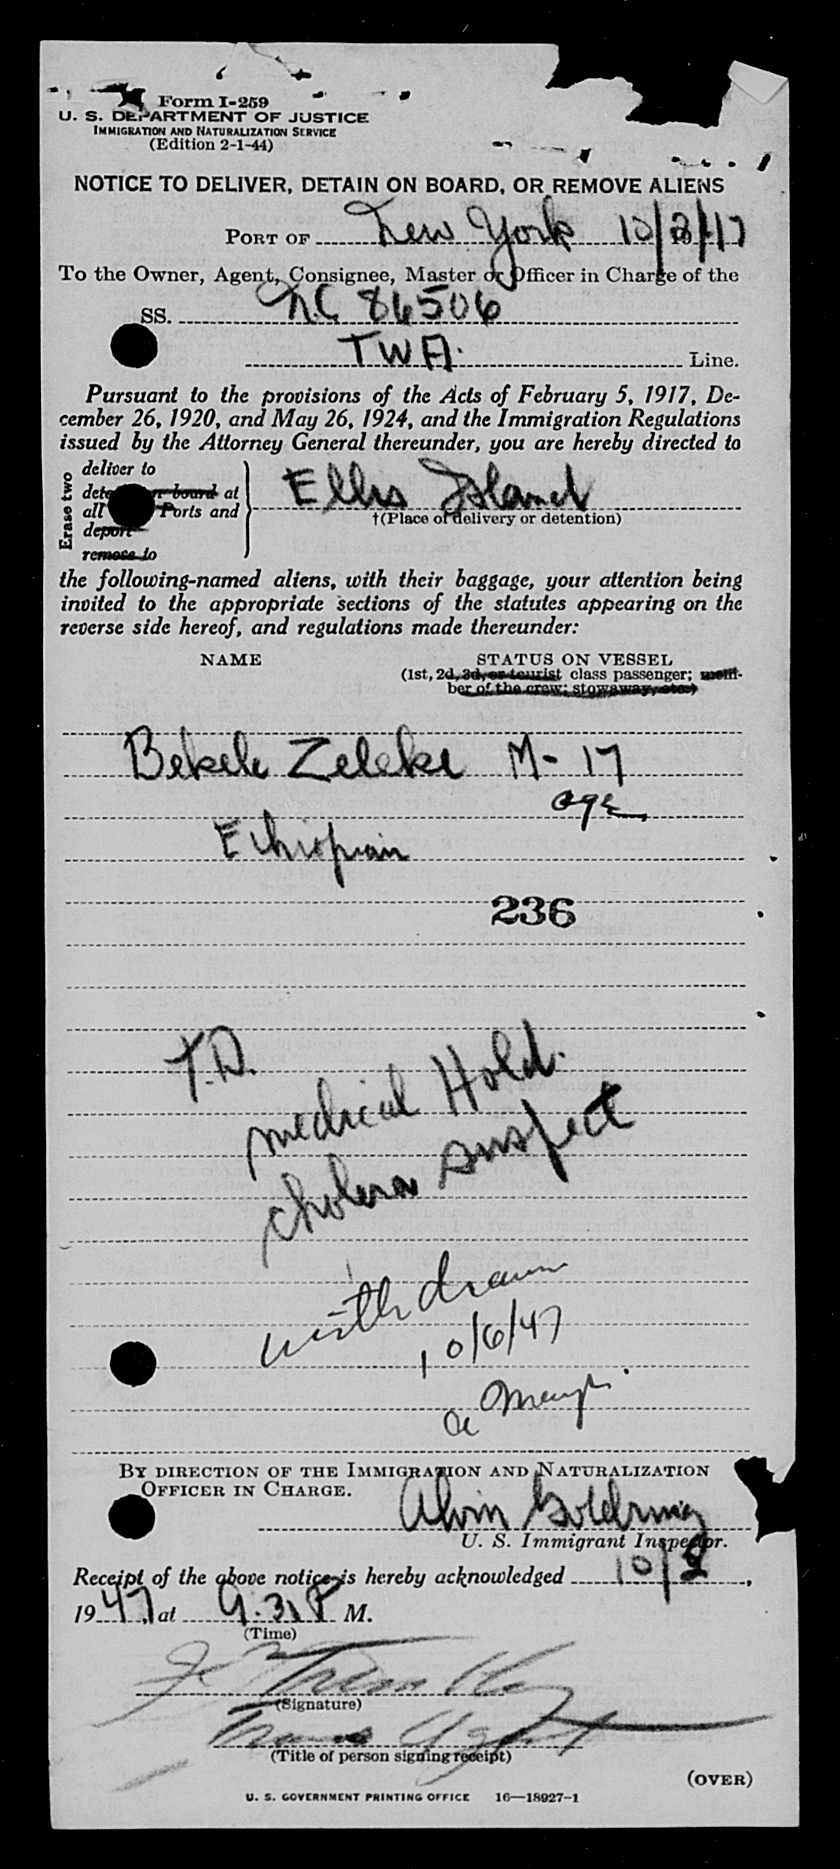 Form I-259
U. S. DEPARTMENT OF JUSTICE
IMMIGRATION AND NATURALIZATION SERVICE
(Edition 2-1-44)
NOTICE TO DELIVER, DETAIN ON BOARD, OR REMOVE ALIENS
PORT OF New York 10/2/47
To the Owner, Agent, Consignee, Master or Officer in Charge of the
SS. NC 86506
TWA. Line.
Pursuant to the provisions of the Acts of February 5, 1917, De-
cember 26, 1920, and May 26, 1924, and the Immigration Regulations
issued by the Attorney General thereunder, you are hereby directed to
Erase two
deliver to
board at
all Ports and
deport
remove to
Ellis Island
†(Place of delivery or detention)
the following-named aliens, with their baggage, your attention being
invited to the appropriate sections of the statutes appearing on the
reverse side hereof, and regulations made thereunder:
NAME STATUS ON VESSEL
(1st, 2d, 3d, or tourist class passenger; mem-
ber of the crew; stowaway, etc.)
Bekele Zeleke M- 17
age
Ethiopian
236
T.D.
medical Hold.
cholera suspect
withdrawn
10/6/47
BY DIRECTION OF THE IMMIGRATION AND NATURALIZATION
OFFICER IN CHARGE.
Alvin
U. S. Immigrant Inspector.
Receipt of the above notice is hereby acknowledged 10/2,
1947, at 9:31 P M.
(Time)
(Signature)
Trans Agent
(Title of person signing receipt)
(OVER)
U. S. GOVERNMENT PRINTING OFFICE 16—18927-1